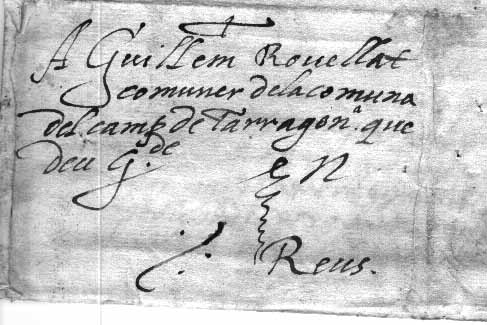 A Guillem Rovellat
comuner de la comuna
del camp de Tarragonª. que
deu G.de
en
Reus.